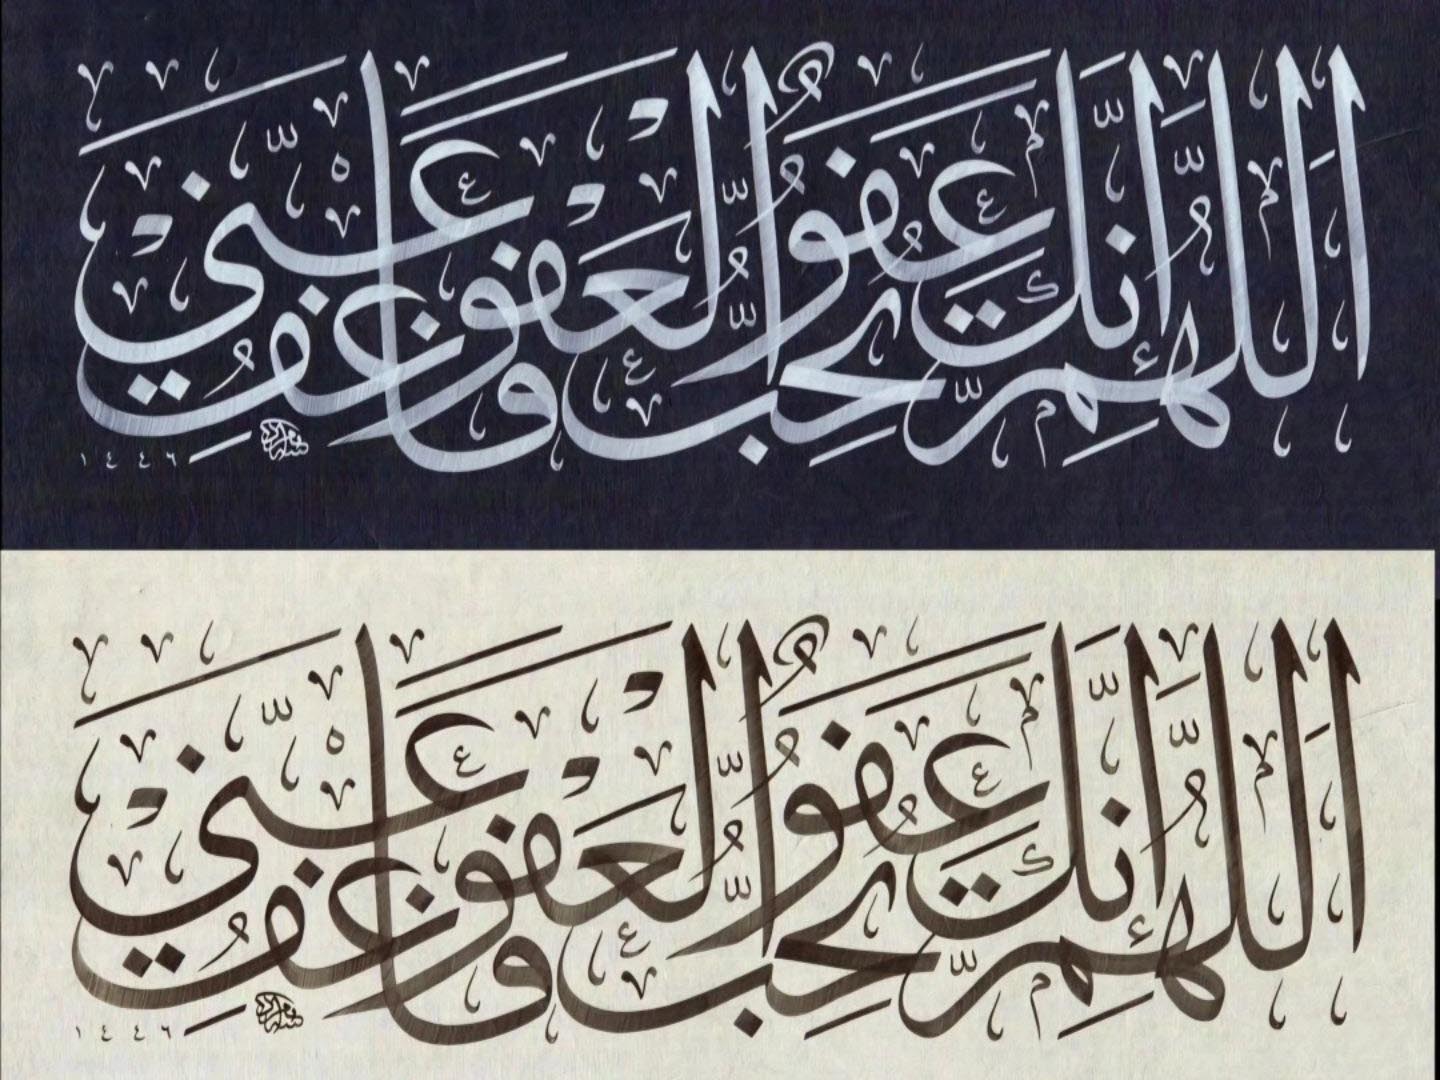 اَللّٰهُمَّ اِنَّكَ عَفُوٌّ تُحِبُّ الْعَفْوَ فَاعْفُ عَنِّي
١٤٤٦
اَللّٰهُمَّ اِنَّكَ عَفُوٌّ تُحِبُّ الْعَفْوَ فَاعْفُ عَنِّي
١٤٤٦